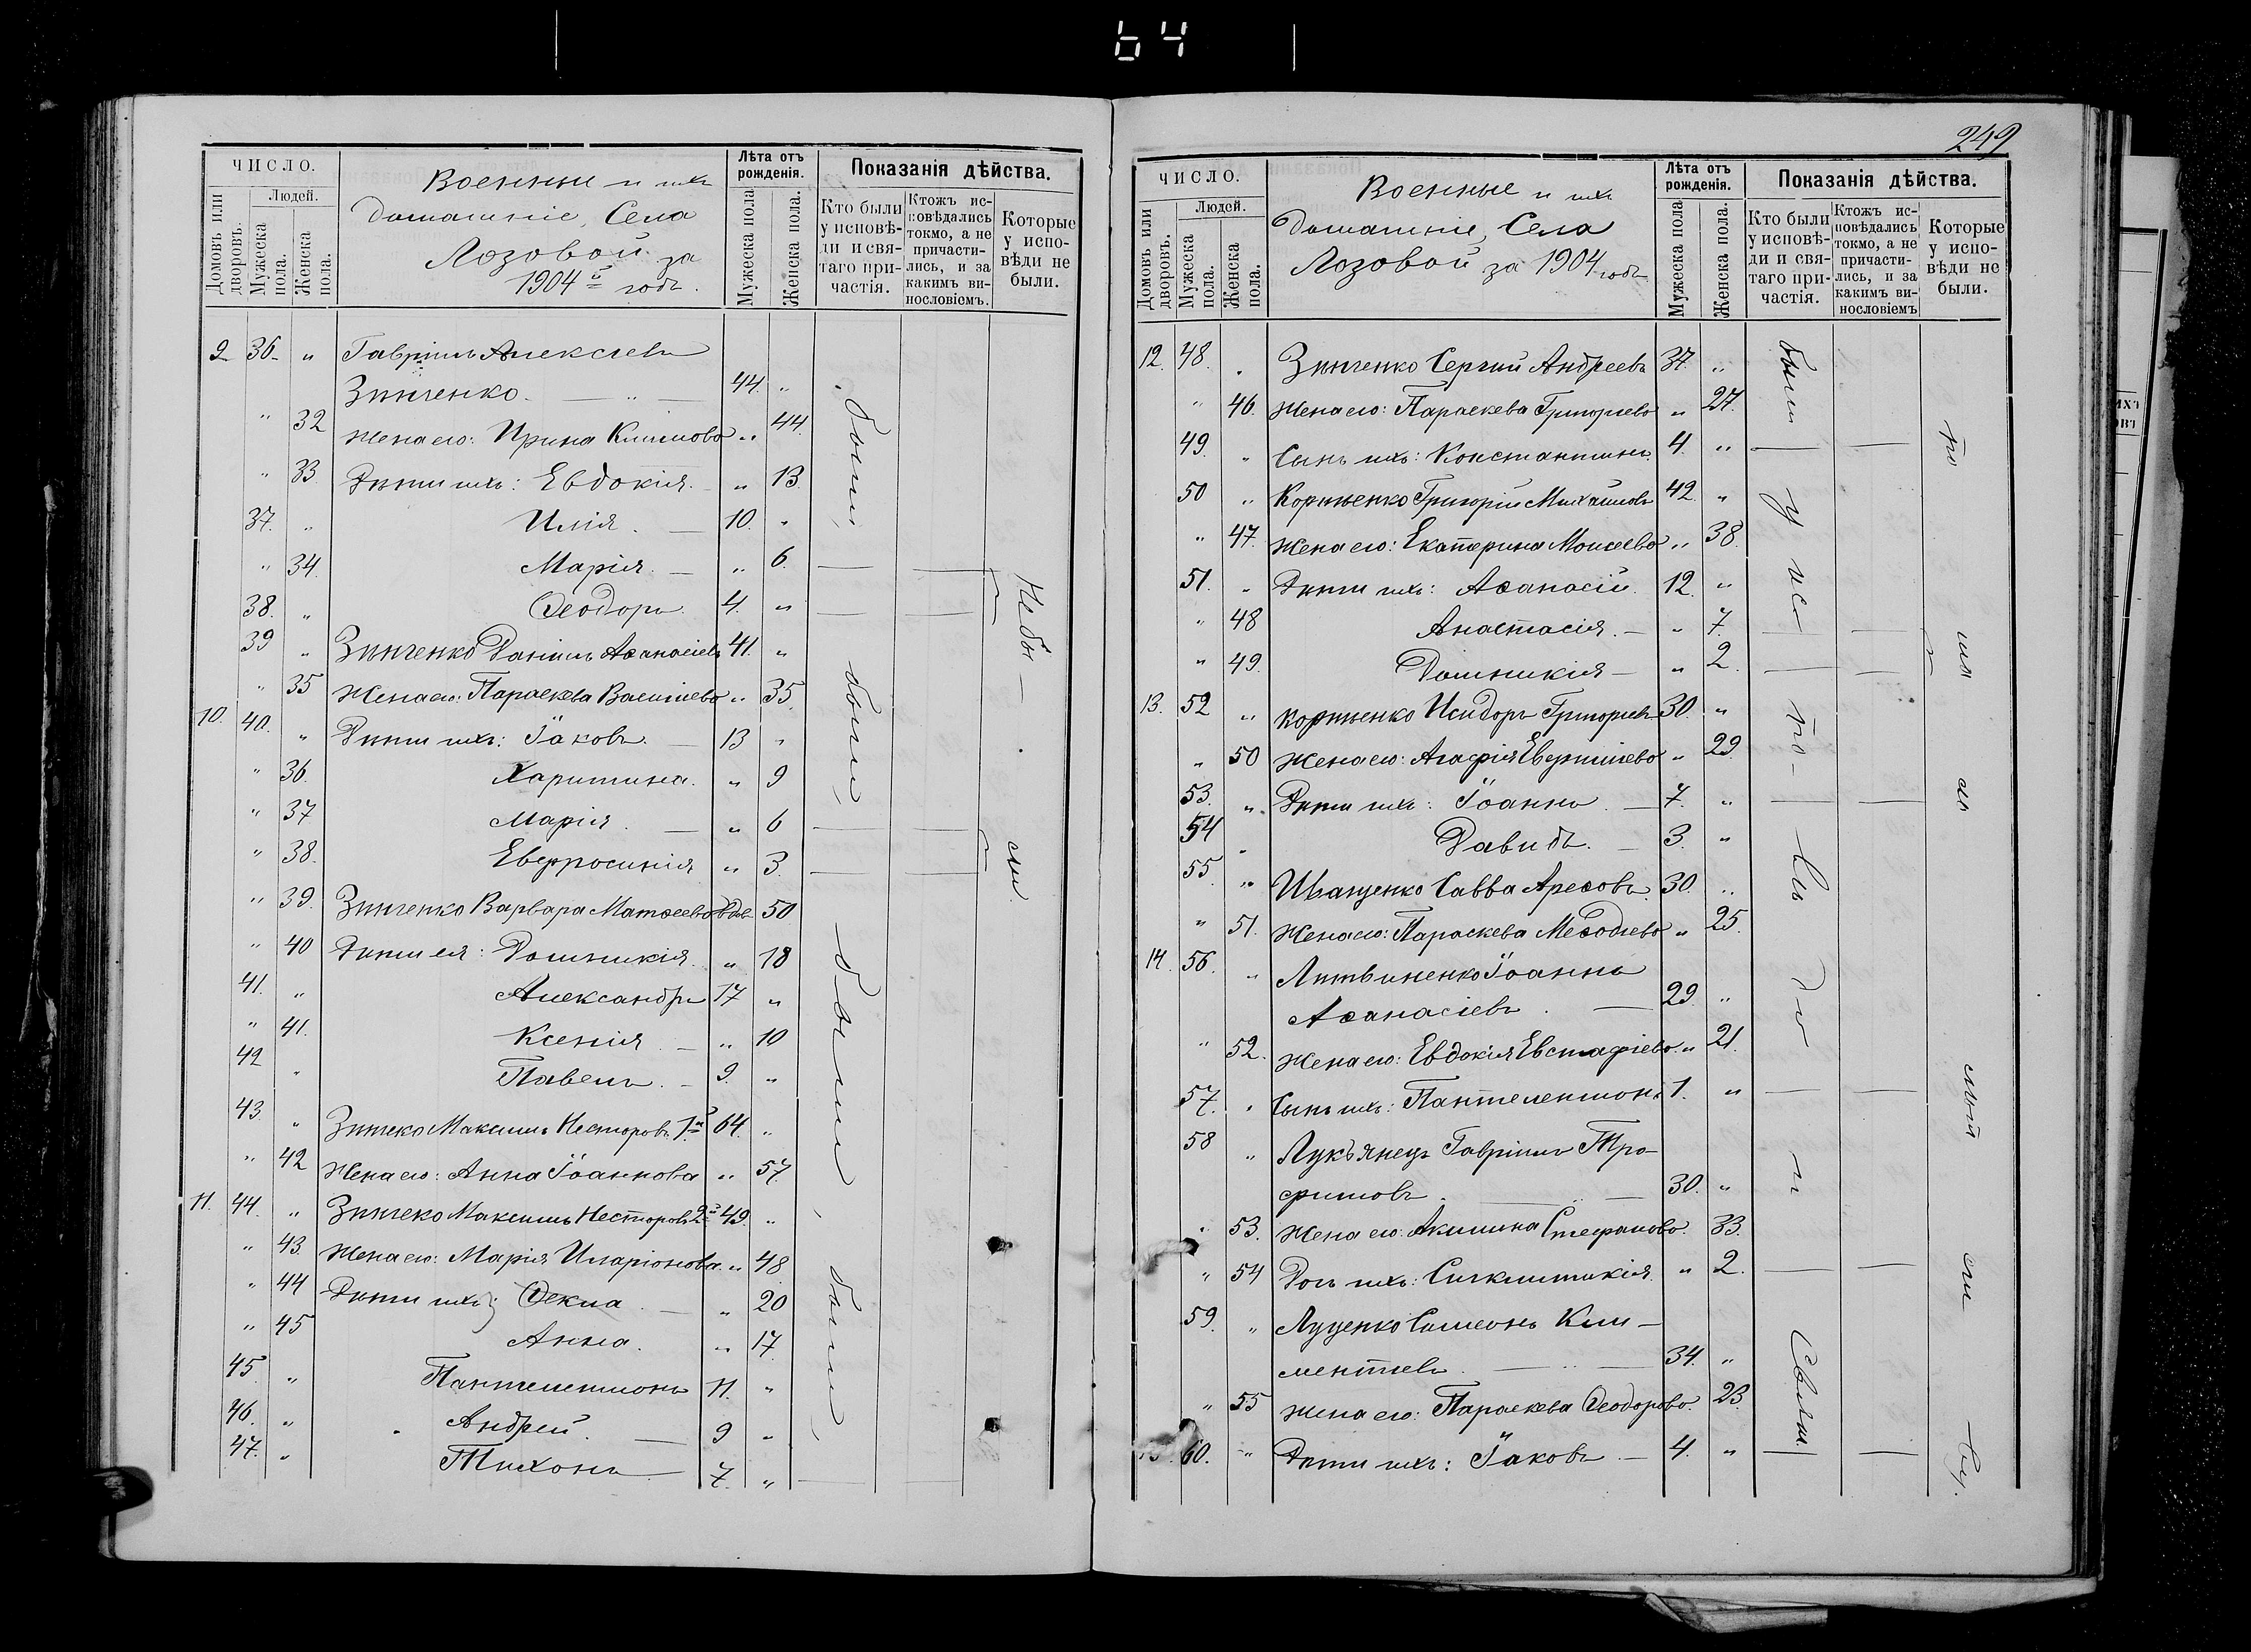 64
ЧИСЛО.
Домовъ или дворовъ.
Людей.
Мужеска пола.
Женска пола.
Военные и ихъ
домашніе, Села
Лозовой за
1904й годъ.
Лѣта отъ рожденія.
Мужеска пола
Женска пола.
Показанія дѣйства.
Кто были у исповѣди и святаго причастія.
Ктожъ исповѣдались токмо, а не причастились, и за какимъ винословіемъ.
Которые у исповѣди не были.
9 36 „ Гавріилъ Алексѣевъ
Зинченко. — „ — 44. „
„ 32 Жена его: Ирина Климова „ 44.
„ 33 Дѣти ихъ: Евдокія. „ 13.
37. „ Илія. — 10. „
„ 34. Марія. — „ 6.
38. „ Ѳеодоръ. 4. „
39 „ Зинченко Даніилъ Аѳанасіевъ 41. „
„ 35 Жена его: Параскева Василіева „ 35.
10. 40. „ Дѣти ихъ: Іаковъ. — 13 „
„ 36. Харитина. „ 9
„ 37 Марія. — „ 6
„ 38. Евфросинія „ 3.
„ 39. Зинченко Варвара Матѳеева вдов. 50
„ 40 Дѣти ея: Домникія. „ 18
41. „ Александръ 17 „
„ 41. Ксенія. — „ 10
42 „ Павелъ. — 9. „
43 „ Зинеко Максимъ Несторовъ 1й 64. „
„ 42 Жена его: Анна Іоаннова „ 57.
11. 44. „ Зинеко Максимъ Несторовъ 2й 49. „
„ 43. Жена его: Марія Иларіонова „ 48
„ 44 Дѣти ихъ: Ѳекла. — „ 20
„ 45 Анна. „ 17.
45. „ Пантелеимонъ 11. „
46. „ Андрей. — 9 „
47. „ Тихонъ — 7. „
были,
были,
были,
были,
Не бы — ли.
249
ЧИСЛО.
Домовъ или дворовъ.
Людей.
Мужеска пола.
Женска пола.
Военные и ихъ
домашніе, Села
Лозовой за 1904 годъ
Лѣта отъ рожденія.
Мужеска пола
Женска пола.
Показанія дѣйства.
Кто были у исповѣди и святаго причастія.
Ктожъ исповѣдались токмо, а не причастились, и за какимъ винословіемъ
Которые у исповѣди не были.
12. 48. „ Зинченко Сергій Андреевъ 37. „
„ 46. Жена его: Параскева Григоріева „ 27.
49. „ Сынъ ихъ: Константинъ. 4. „
50 „ Корніенко Григорій Михаиловъ 42. „
„ 47. Жена его: Екатерина Моисеева „ 38.
51. „ Дѣти ихъ: Аѳанасій. 12. „
„ 48 Анастасія. — „ 7.
„ 49. Домникія — „ 2.
13. 52 „ Корніенко Исидоръ Григорьевъ 30. „
„ 50 Жена его: Агафія Евфиміева „ 29.
53. „ Дѣти ихъ: Іоаннъ. — 7. „
54 „ Давидъ. — 3. „
55 „ Иващенко Савва Ареѳовъ 30. „
„ 51. Жена его: Параскева Меѳодіева „ 25.
14. 56. „ Литвиненко Іоаннъ
Аѳанасіевъ. — 29. „
„ 52. Жена его: Евдокія Евстафіева „ 21.
57. „ Сынъ ихъ: Пантелеимонъ 1. „
58 „ Лукъянецъ Гавріилъ Тро-
фимовъ. — 30. „
„ 53. Жена его: Акилина Стефанова. 33.
„ 54 Дочь ихъ: Синклитикія. „ 2.
59. „ Луценко Симеонъ Кли-
ментіевъ. — 34. „
„ 55 Жена его: Параскева Ѳеодорова. 23.
60. „ Дѣти ихъ: Іаковъ. — 4. „
были
у ис-
по-
вѣ
ди
и